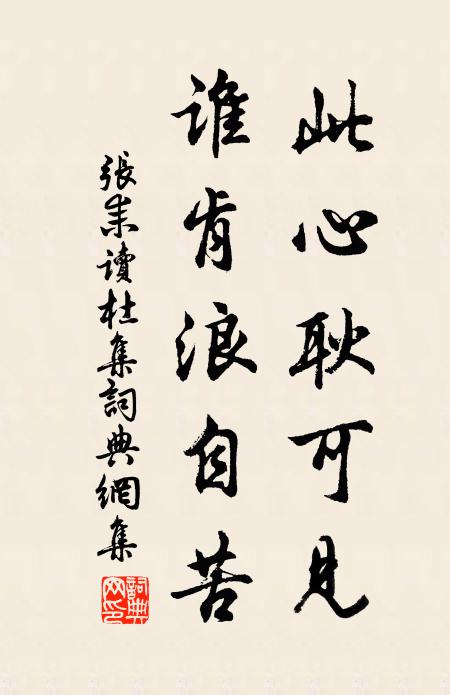 此心耿可見
誰肯浪自苦
張耒讀杜集詞典網集
詞典網印